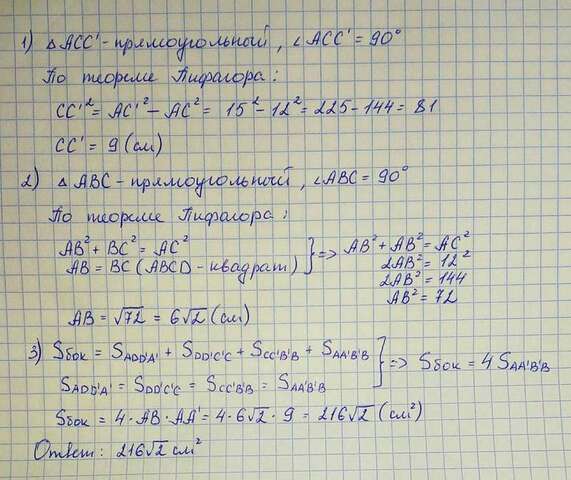 1) △ACC' - прямоугольный, ∠ACC' = 90°
По теореме Пифагора:
CC'² = AC'² - AC² = 15² - 12² = 225 - 144 = 81
CC' = 9 (см)
2) △ABC - прямоугольный, ∠ABC = 90°
По теореме Пифагора:
AB² + BC² = AC²
AB = BC (ABCD - квадрат) } => AB² + AB² = AC²
2AB² = 12²
2AB² = 144
AB² = 72
AB = √72 = 6√2 (см)
3) Sбок = SADD'A' + SDD'C'C + SCC'B'B + SAA'B'B
SADD'A' = SDD'C'C = SCC'B'B = SAA'B'B } => Sбок = 4 SAA'B'B
Sбок = 4 · AB · AA' = 4 · 6√2 · 9 = 216√2 (см²)
Ответ: 216√2 см²